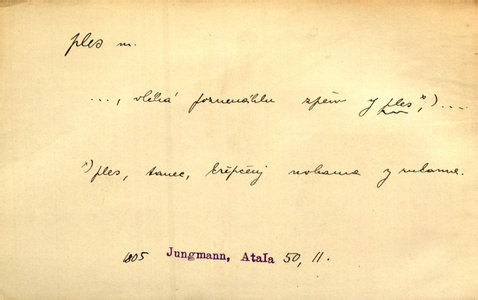 ples m.
..., vléká poznenáhlu zpěv y ples,*)...
*) ples, tanec, křepčenj nohama y rukama.
1805 Jungmann, Atala 50, 11.